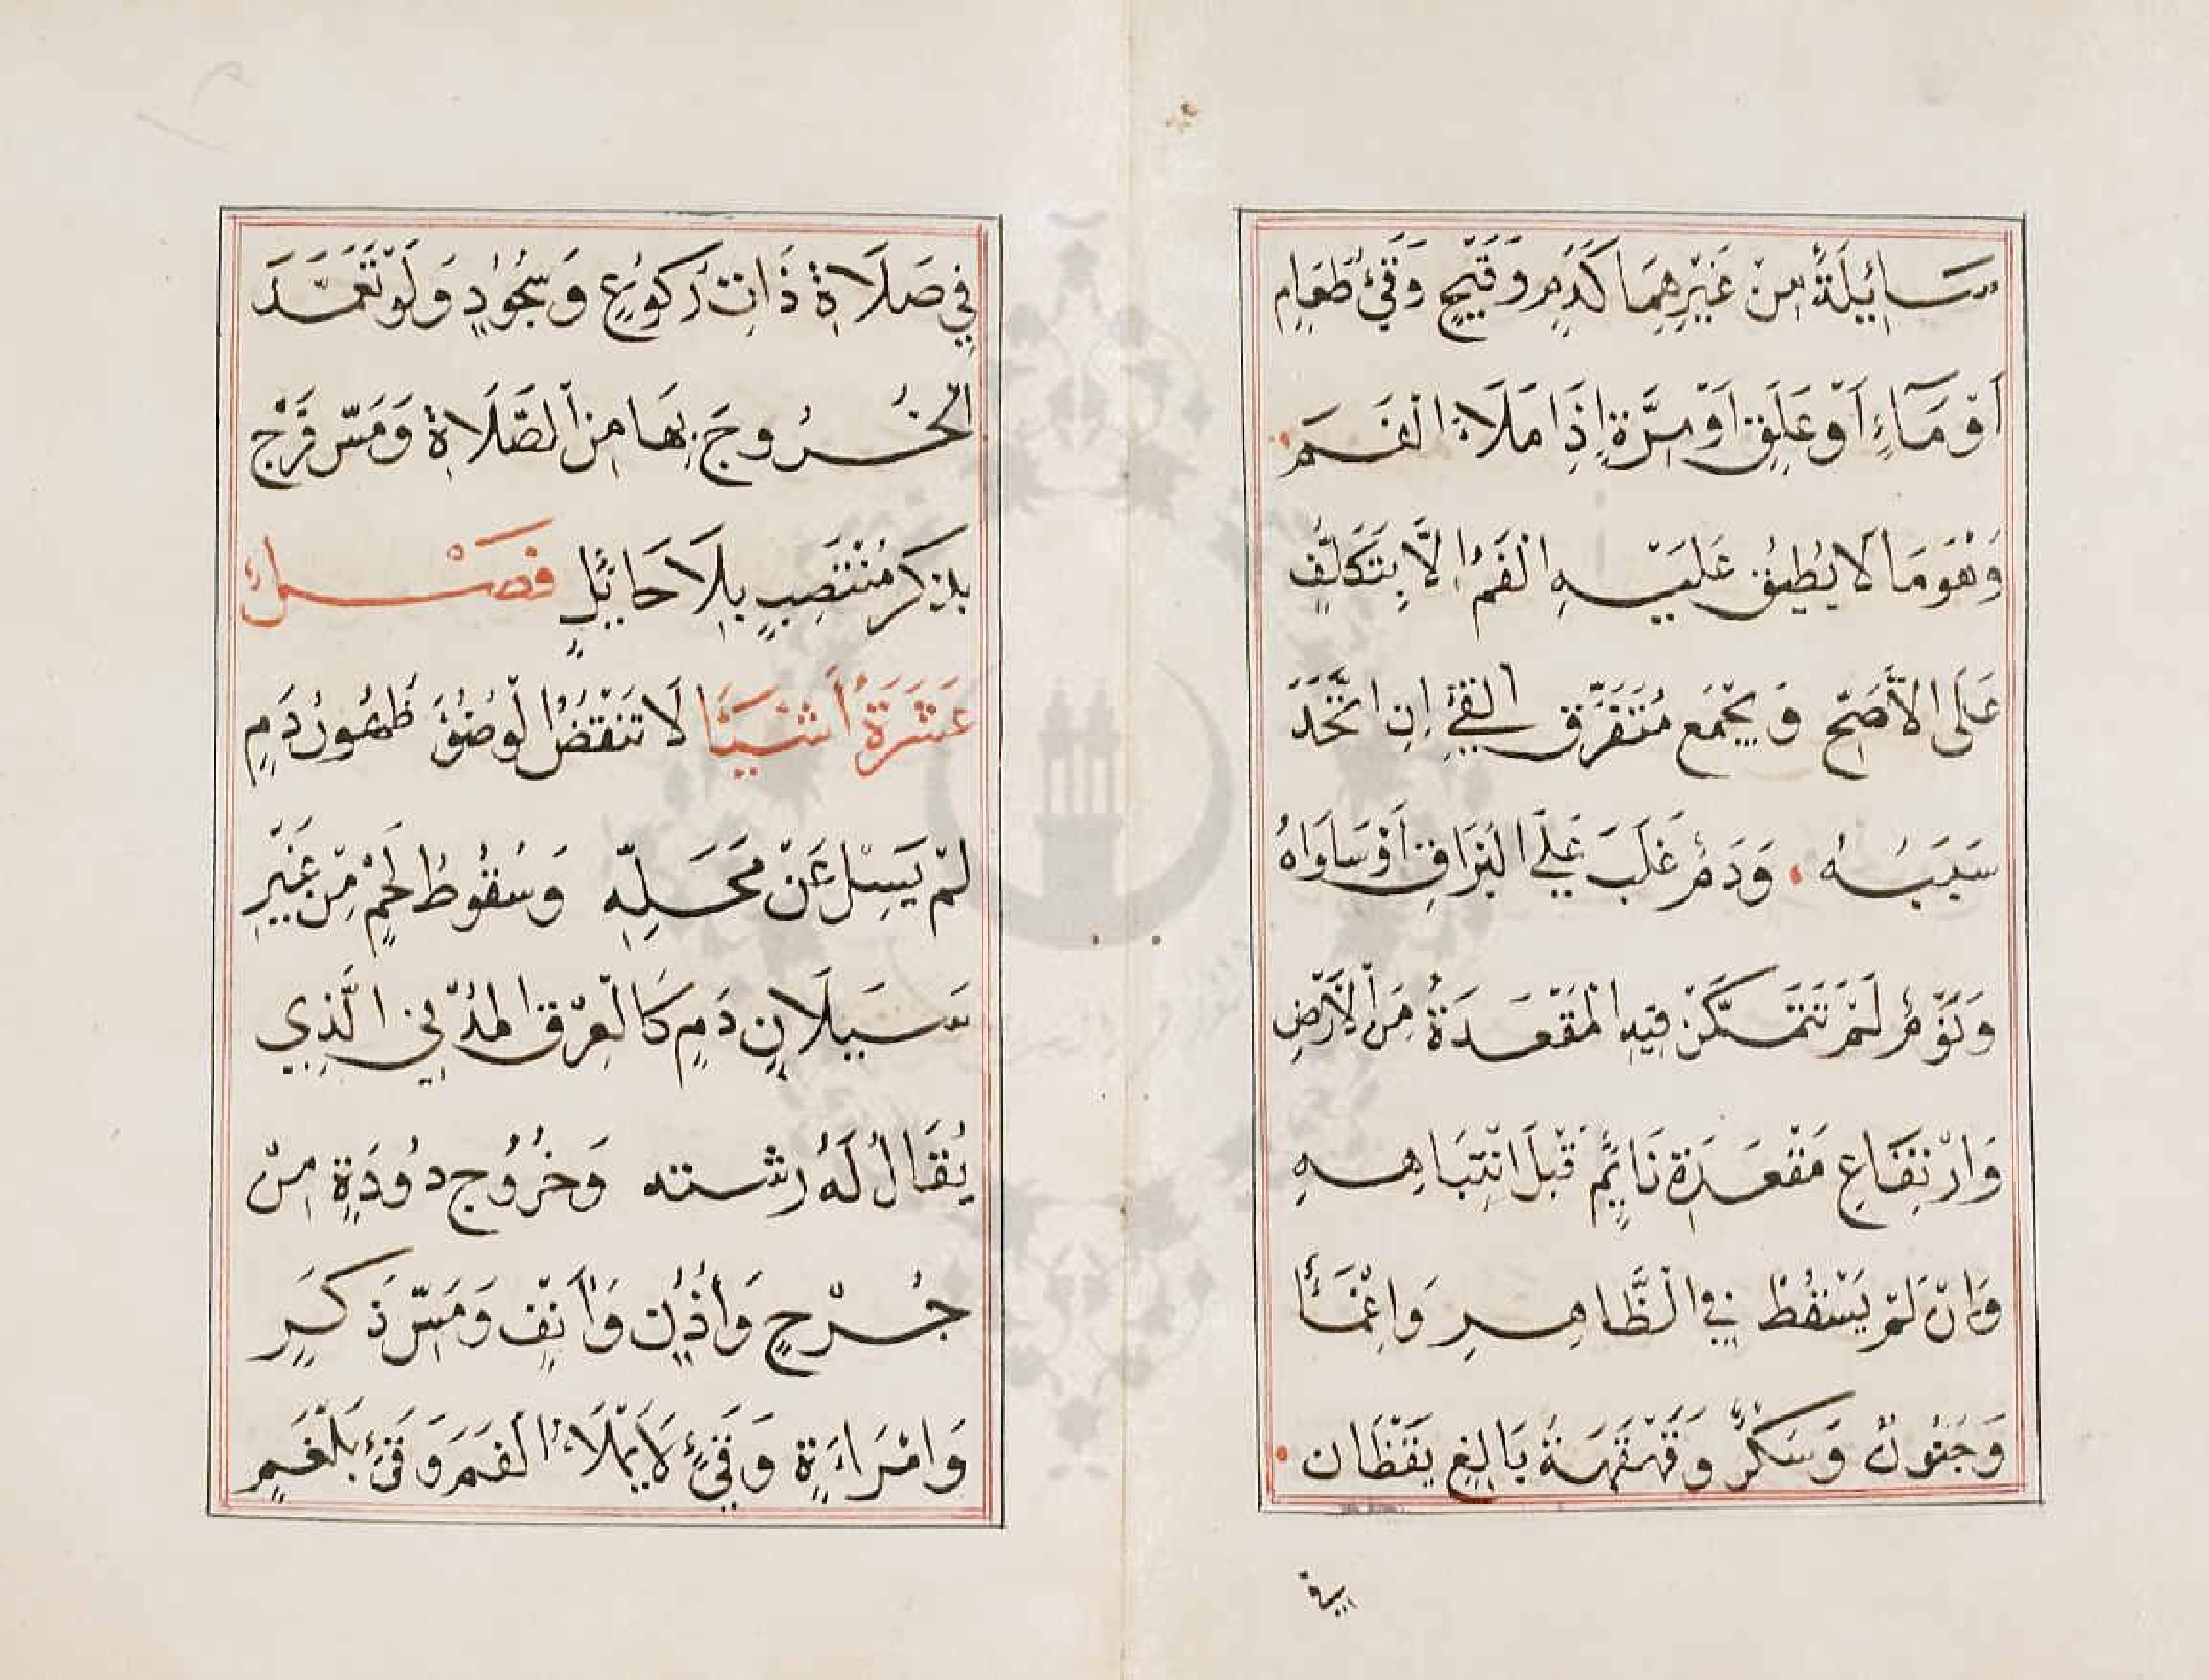 سَائِيلَةٌ مِنْ غَيْرِهِمَا كَدَمٍ وَقَيْحٍ وَقَيْءُ طَعَامٍ
أَوْ مَآءٍ أَوْ عَلَقٍ أَوْ مِرَّةٍ إِذَا مَلَاءَ الْفَمَ
وَهُوَ مَا لَا يُطِيقُ عَلَيْهِ الْفَمُ إِلَّا بِتَكَلُّفٍ
عَلَى الْأَصَحِّ وَيُجْمَعُ مُتَفَرِّقُ الْقَيْءِ إِنِ اتَّحَدَ
سَبَبَهُ وَدَمٌ غَلَبَ عَلَى الْبُزَاقِ أَوْ سَاوَاهُ
وَنَوْمٌ لَمْ تَتَمَكَّنْ فِيهِ الْمَقْعَدَةُ مِنَ الْأَرْضِ
وَارْتِفَاعِ مَقْعَدَةِ نَايِمٍ قَبْلَ انْتِبَاهِهِ
وَإِنْ لَمْ يَسْقُطْ فِي الظَّاهِرِ وَإِغْمَأٌ
وَجُنُونٌ وَسَكْرٌ وَقَهْقَهَةُ بَالِغٍ يَقْظَانَ
في
فِي صَلَاةٍ ذَاتِ رُكُوعٍ وَسُجُودٍ وَلَوْ تَعَمَّدَ
الْخُرُوجَ بِهَا مِنَ الصَّلَاةِ وَمَسُّ فَرْجٍ
بِذَكَرٍ مُنْتَصِبٍ بِلَا حَائِلٍ فَصْلٌ
عَشَرَةُ أَشْيَا لَا تَنْقُضُ الْوُضُؤَ ظُهُورُ دَمٍ
لَمْ يَسِلْ عَنْ مَحَلِّهِ وَسُقُوطُ لَحْمٍ مِنْ غَيْرِ
سَيَلَانِ دَمٍ كَالْعِرْقِ الْمَدَنِيِّ الَّذِي
يُقَالُ لَهُ رشته وَخُرُوجِ دُودَةٍ مِنْ
جُرْحٍ وَأُذُنٍ وَأَنْفٍ وَمَسُّ ذَكَرٍ
وَامْرَاءَةٍ وَقَيْءٌ لَا يَمْلَاءُ الْفَمَ وَقَيْءُ بَلْغَمٍ